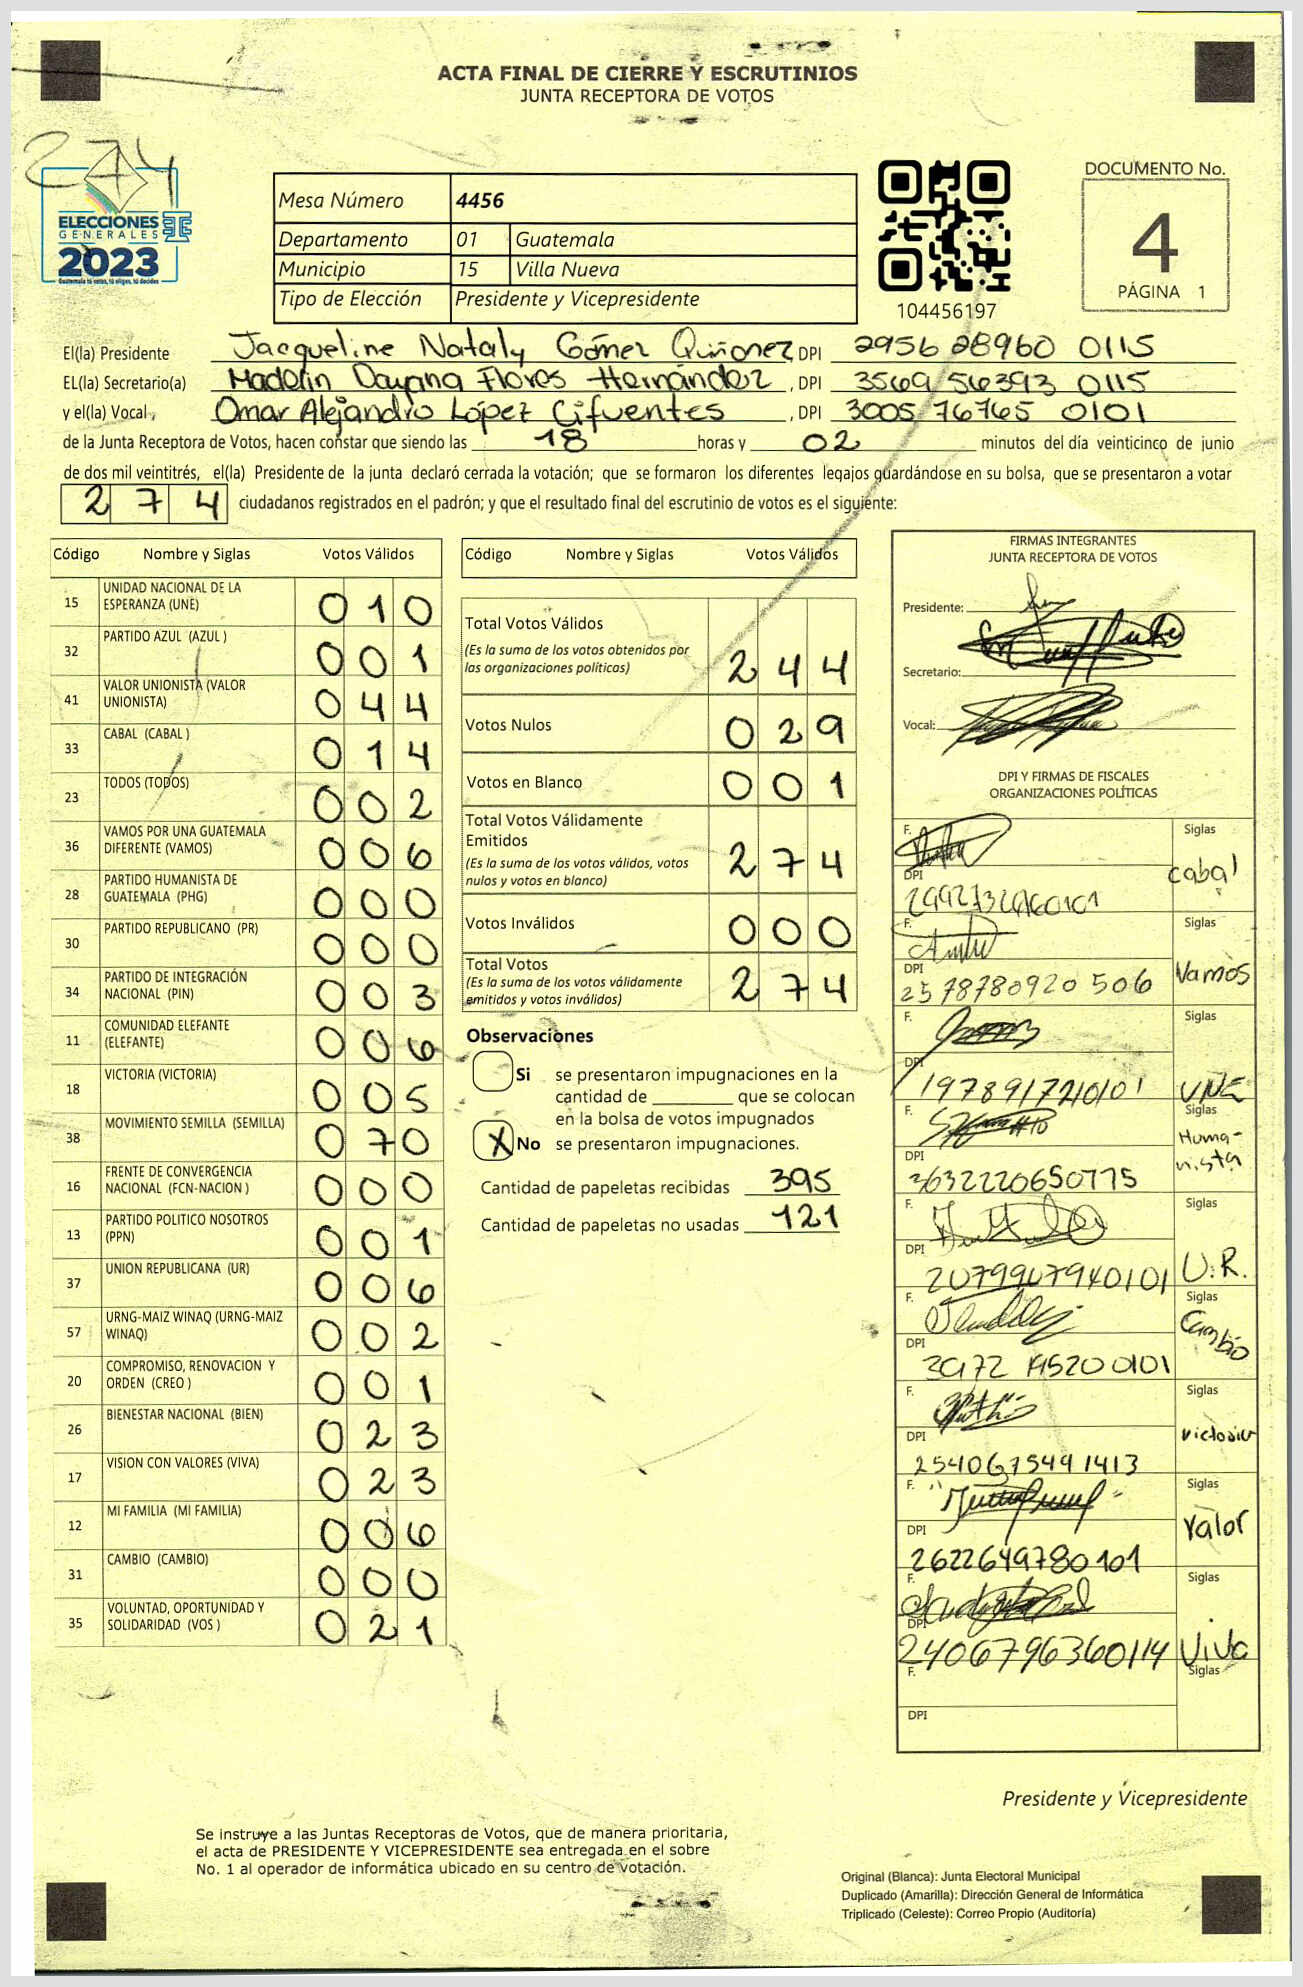 ACTA FINAL DE CIERRE Y ESCRUTINIOS
JUNTA RECEPTORA DE VOTOS
274
ELECCIONES
GENERALES
2023
Guatemala tú votas, tú eliges, tú decides
Mesa Número 4456
Departamento 01 Guatemala
Municipio 15 Villa Nueva
Tipo de Elección Presidente y Vicepresidente
104456197
DOCUMENTO No.
4
PÁGINA 1
El(la) Presidente Jacqueline Nataly Gómez Quiñonez DPI 2956 28960 0115
EL(la) Secretario(a) Madelin Dayana Flores Hernández, DPI 3569 56393 0115
y el(la) Vocal, Omar Alejandro López Cifuentes, DPI 3005 76765 0101
de la Junta Receptora de Votos, hacen constar que siendo las 18 horas y 02 minutos del día veinticinco de junio
de dos mil veintitrés, el(la) Presidente de la junta declaró cerrada la votación; que se formaron los diferentes legajos guardándose en su bolsa, que se presentaron a votar
274 ciudadanos registrados en el padrón; y que el resultado final del escrutinio de votos es el siguiente:
Código Nombre y Siglas Votos Válidos
15 UNIDAD NACIONAL DE LA ESPERANZA (UNE) 010
32 PARTIDO AZUL (AZUL ) 001
41 VALOR UNIONISTA (VALOR UNIONISTA) 044
33 CABAL (CABAL ) 014
23 TODOS (TODOS) 002
36 VAMOS POR UNA GUATEMALA DIFERENTE (VAMOS) 006
28 PARTIDO HUMANISTA DE GUATEMALA (PHG) 000
30 PARTIDO REPUBLICANO (PR) 000
34 PARTIDO DE INTEGRACIÓN NACIONAL (PIN) 003
11 COMUNIDAD ELEFANTE (ELEFANTE) 006
18 VICTORIA (VICTORIA) 005
38 MOVIMIENTO SEMILLA (SEMILLA) 070
16 FRENTE DE CONVERGENCIA NACIONAL (FCN-NACION ) 000
13 PARTIDO POLITICO NOSOTROS (PPN) 001
37 UNION REPUBLICANA (UR) 006
57 URNG-MAIZ WINAQ (URNG-MAIZ WINAQ) 002
20 COMPROMISO, RENOVACION Y ORDEN (CREO ) 001
26 BIENESTAR NACIONAL (BIEN) 023
17 VISION CON VALORES (VIVA) 023
12 MI FAMILIA (MI FAMILIA) 006
31 CAMBIO (CAMBIO) 000
35 VOLUNTAD, OPORTUNIDAD Y SOLIDARIDAD (VOS ) 021
Código Nombre y Siglas Votos Válidos
Total Votos Válidos
(Es la suma de los votos obtenidos por
las organizaciones políticas) 244
Votos Nulos 029
Votos en Blanco 001
Total Votos Válidamente
Emitidos
(Es la suma de los votos válidos, votos
nulos y votos en blanco) 274
Votos Inválidos 000
Total Votos
(Es la suma de los votos válidamente
emitidos y votos inválidos) 274
Observaciones
Si se presentaron impugnaciones en la
cantidad de ________ que se colocan
en la bolsa de votos impugnados
X No se presentaron impugnaciones.
Cantidad de papeletas recibidas 395
Cantidad de papeletas no usadas 121
FIRMAS INTEGRANTES
JUNTA RECEPTORA DE VOTOS
Presidente:
Secretario:
Vocal:
DPI Y FIRMAS DE FISCALES
ORGANIZACIONES POLÍTICAS
F. Siglas
DPI cabal
F. Siglas
DPI Vamos
2578780920 506
F. Siglas
DPI
1978917210101 UNE
F. Siglas
DPI Humanista
3632220650775
F. Siglas
DPI
2079907940101 U.R.
F. Siglas
DPI Cambio
F. Siglas
DPI Victoria
2540675491413
F. Siglas
DPI Valor
2622649780101
F. Siglas
DPI
2406796360114 Viva
F. Siglas
DPI
Presidente y Vicepresidente
Se instruye a las Juntas Receptoras de Votos, que de manera prioritaria,
el acta de PRESIDENTE Y VICEPRESIDENTE sea entregada en el sobre
No. 1 al operador de informática ubicado en su centro de votación.
Original (Blanca): Junta Electoral Municipal
Duplicado (Amarilla): Dirección General de Informática
Triplicado (Celeste): Correo Propio (Auditoría)